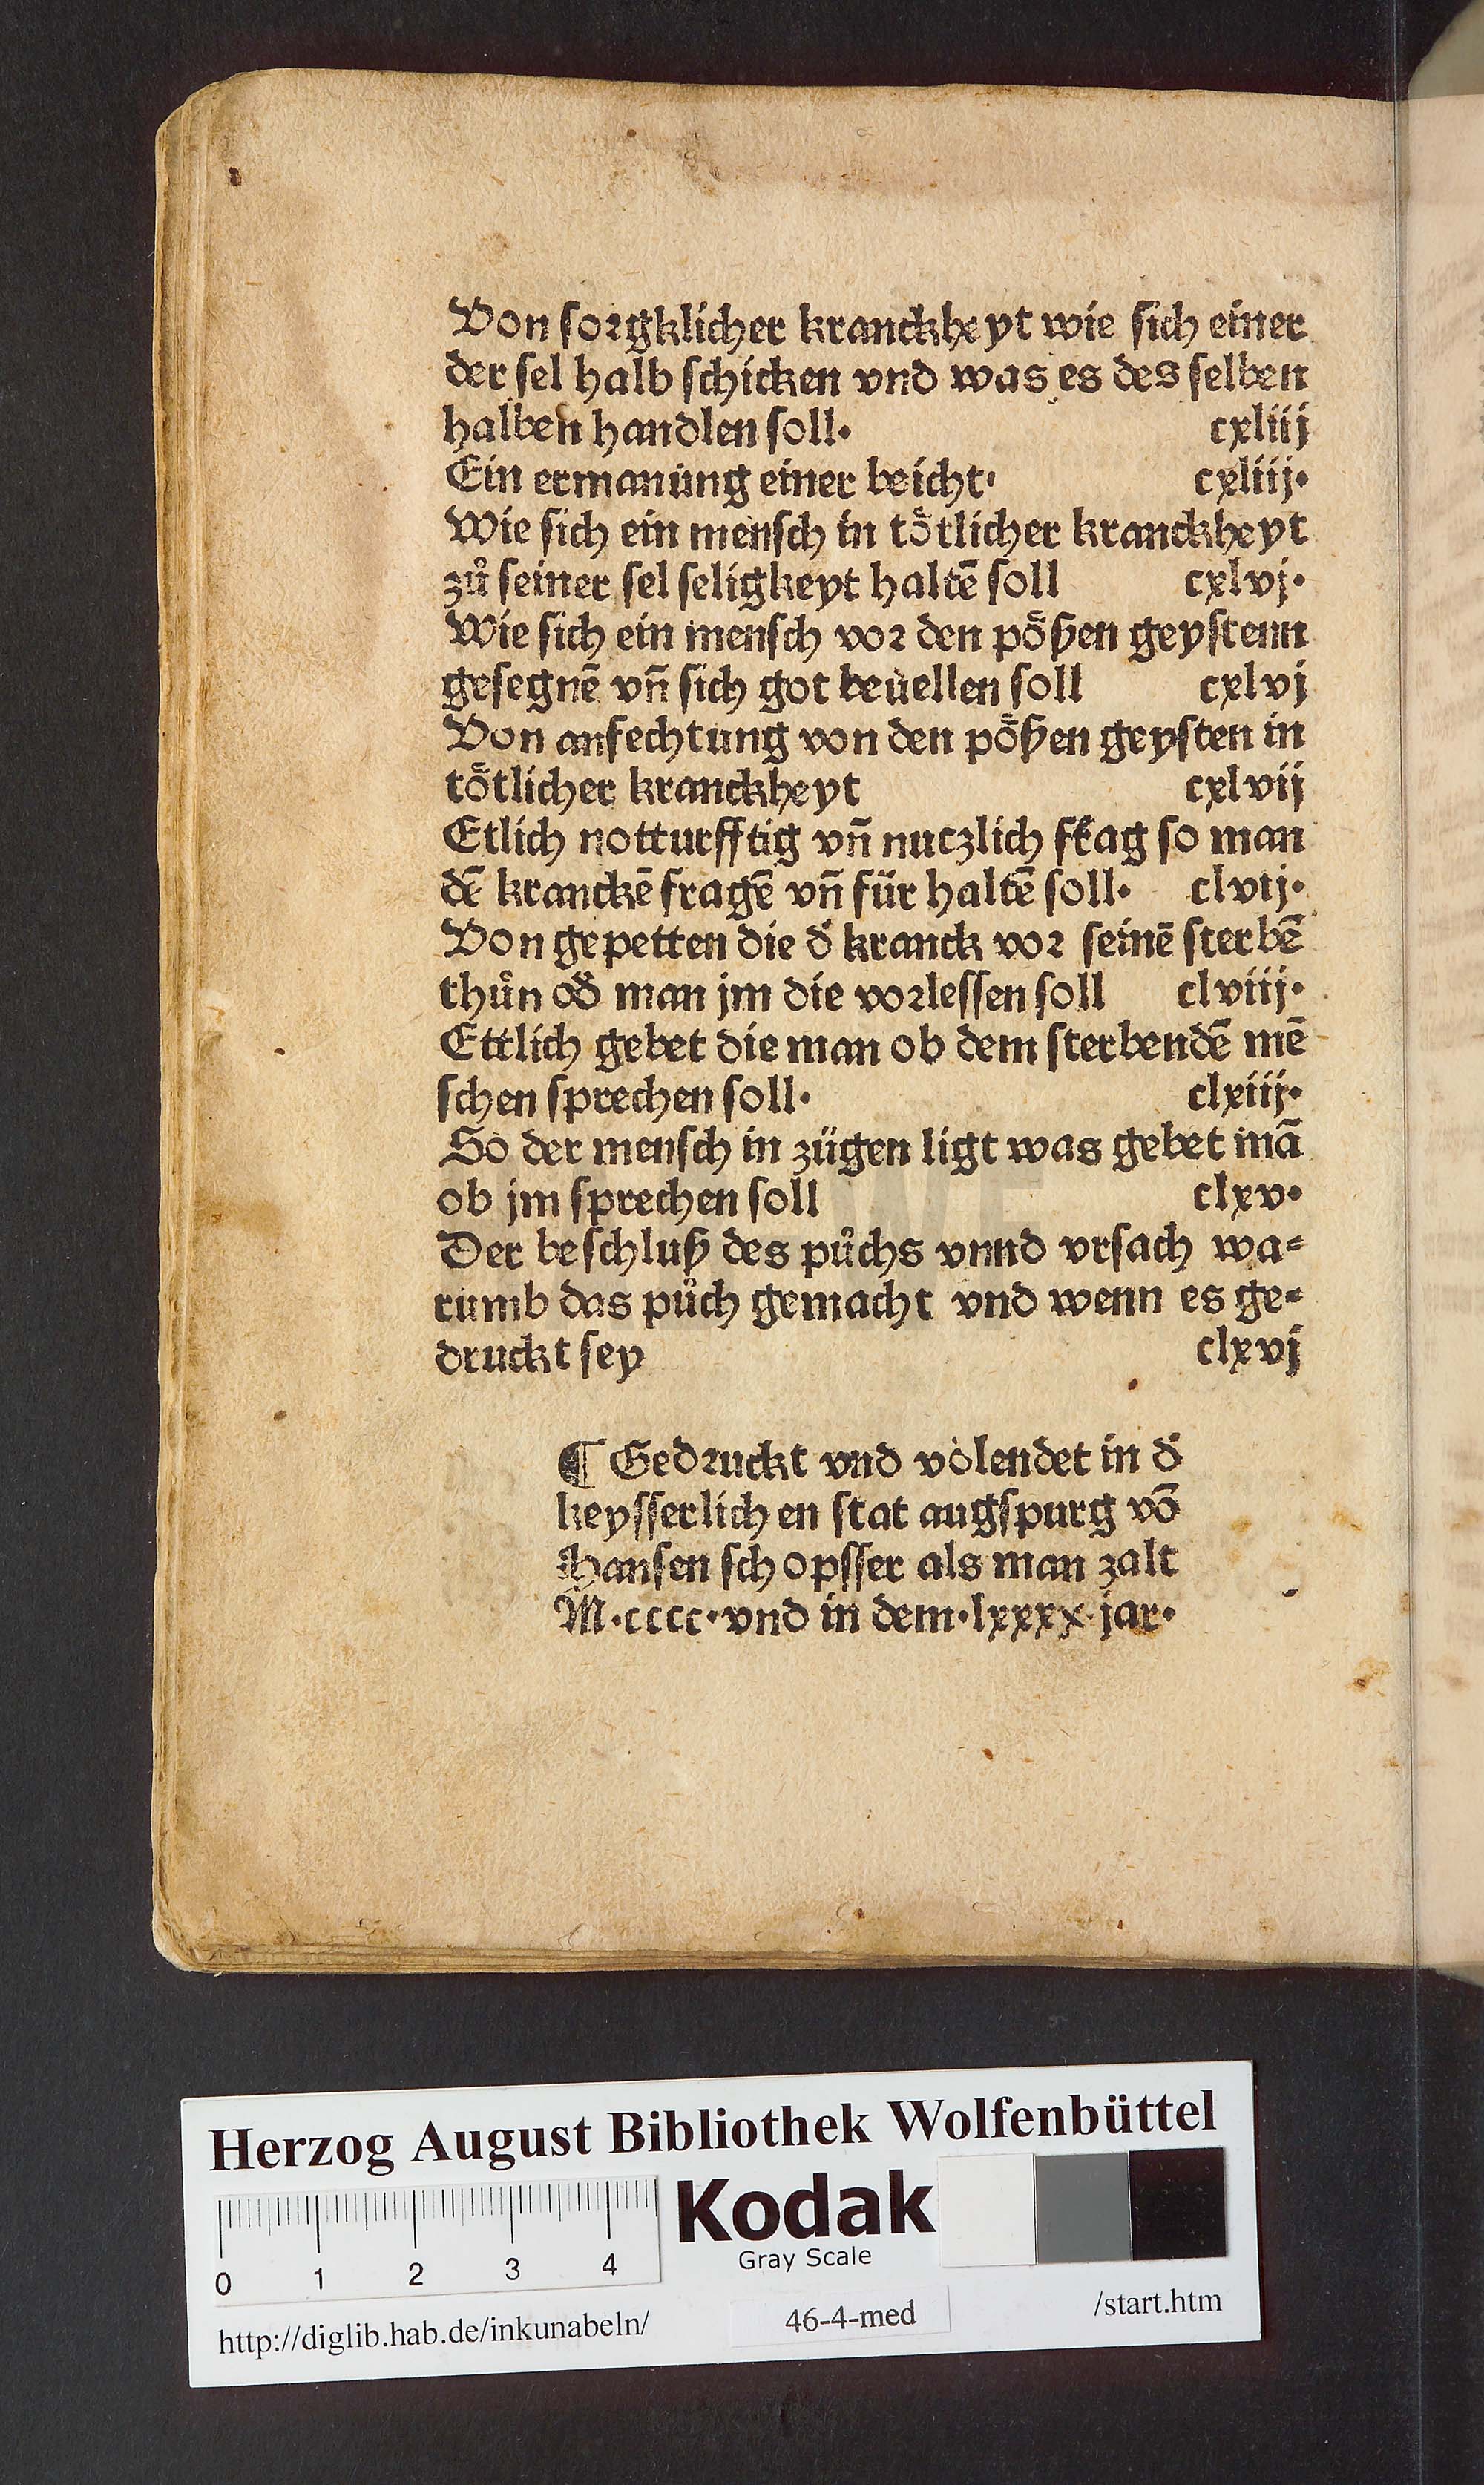 Von sorgklicher kranckheyt wie sich einer
der sel halb schicken vnd was es des selben
halben handlen soll. cxliij
Ein ermanung einer beicht. cxliij.
Wie sich ein mensch in toͤtlicher kranckheyt
zuͦ seiner sel seligkeyt haltē soll cxlvj.
Wie sich ein mensch vor den poͤßen geystenn
gesegnē vn̄ sich got beuellen soll cxlvj
Von anfechtung von den poͤßen geysten in
toͤtlicher kranckheyt cxlvij
Etlich notturfftig vn̄ nutzlich frag so man
dē kranckē fragē vn̄ für haltē soll. clvij.
Von gepetten die d̕ kranck vor seinē sterbē
thuͦn od̕ man jm die vorlessen soll clviij.
Ettlich gebet die man ob dem sterbendē mē
schen sprechen soll. clxiij.
So der mensch in zügen ligt was gebet mā
ob jm sprechen soll clxv.
Der beschluß des puͦchs vnnd vrsach wa⸗
rumb das puͦch gemacht vnd wenn es ge⸗
druckt sey clxvj
¶ Gedruckt vnd volendet in d̕
keysserlich en stat augspurg vō
Hansen schopsser als man zalt
M.cccc.vnd in dem.lxxxx.jar.
Herzog August Bibliothek Wolfenbüttel
Kodak
Gray Scale
0 1 2 3 4
http://diglib.hab.de/inkunabeln/ 46-4-med /start.htm